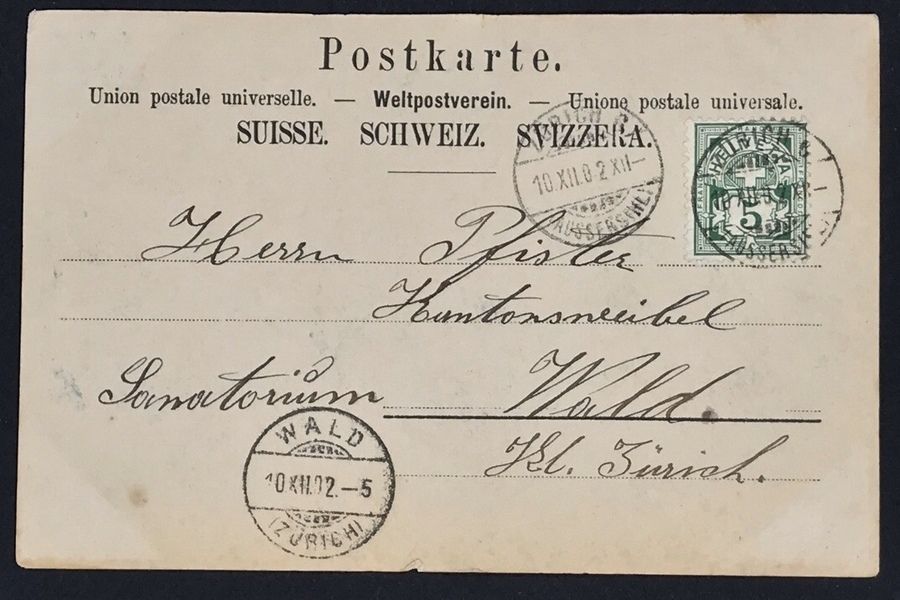 Postkarte.
Union postale universelle. — Weltpostverein. — Unione postale universale.
SUISSE. SCHWEIZ. SVIZZERA.
10.XII.0.2 XII—
(AUSSERSIHL)
HELVETIA
5
Herrn Pfister
Kantonsweibel
Sanatorium Wald.
Kt. Zürich.
WALD
10.XII.02.—5
(ZÜRICH)